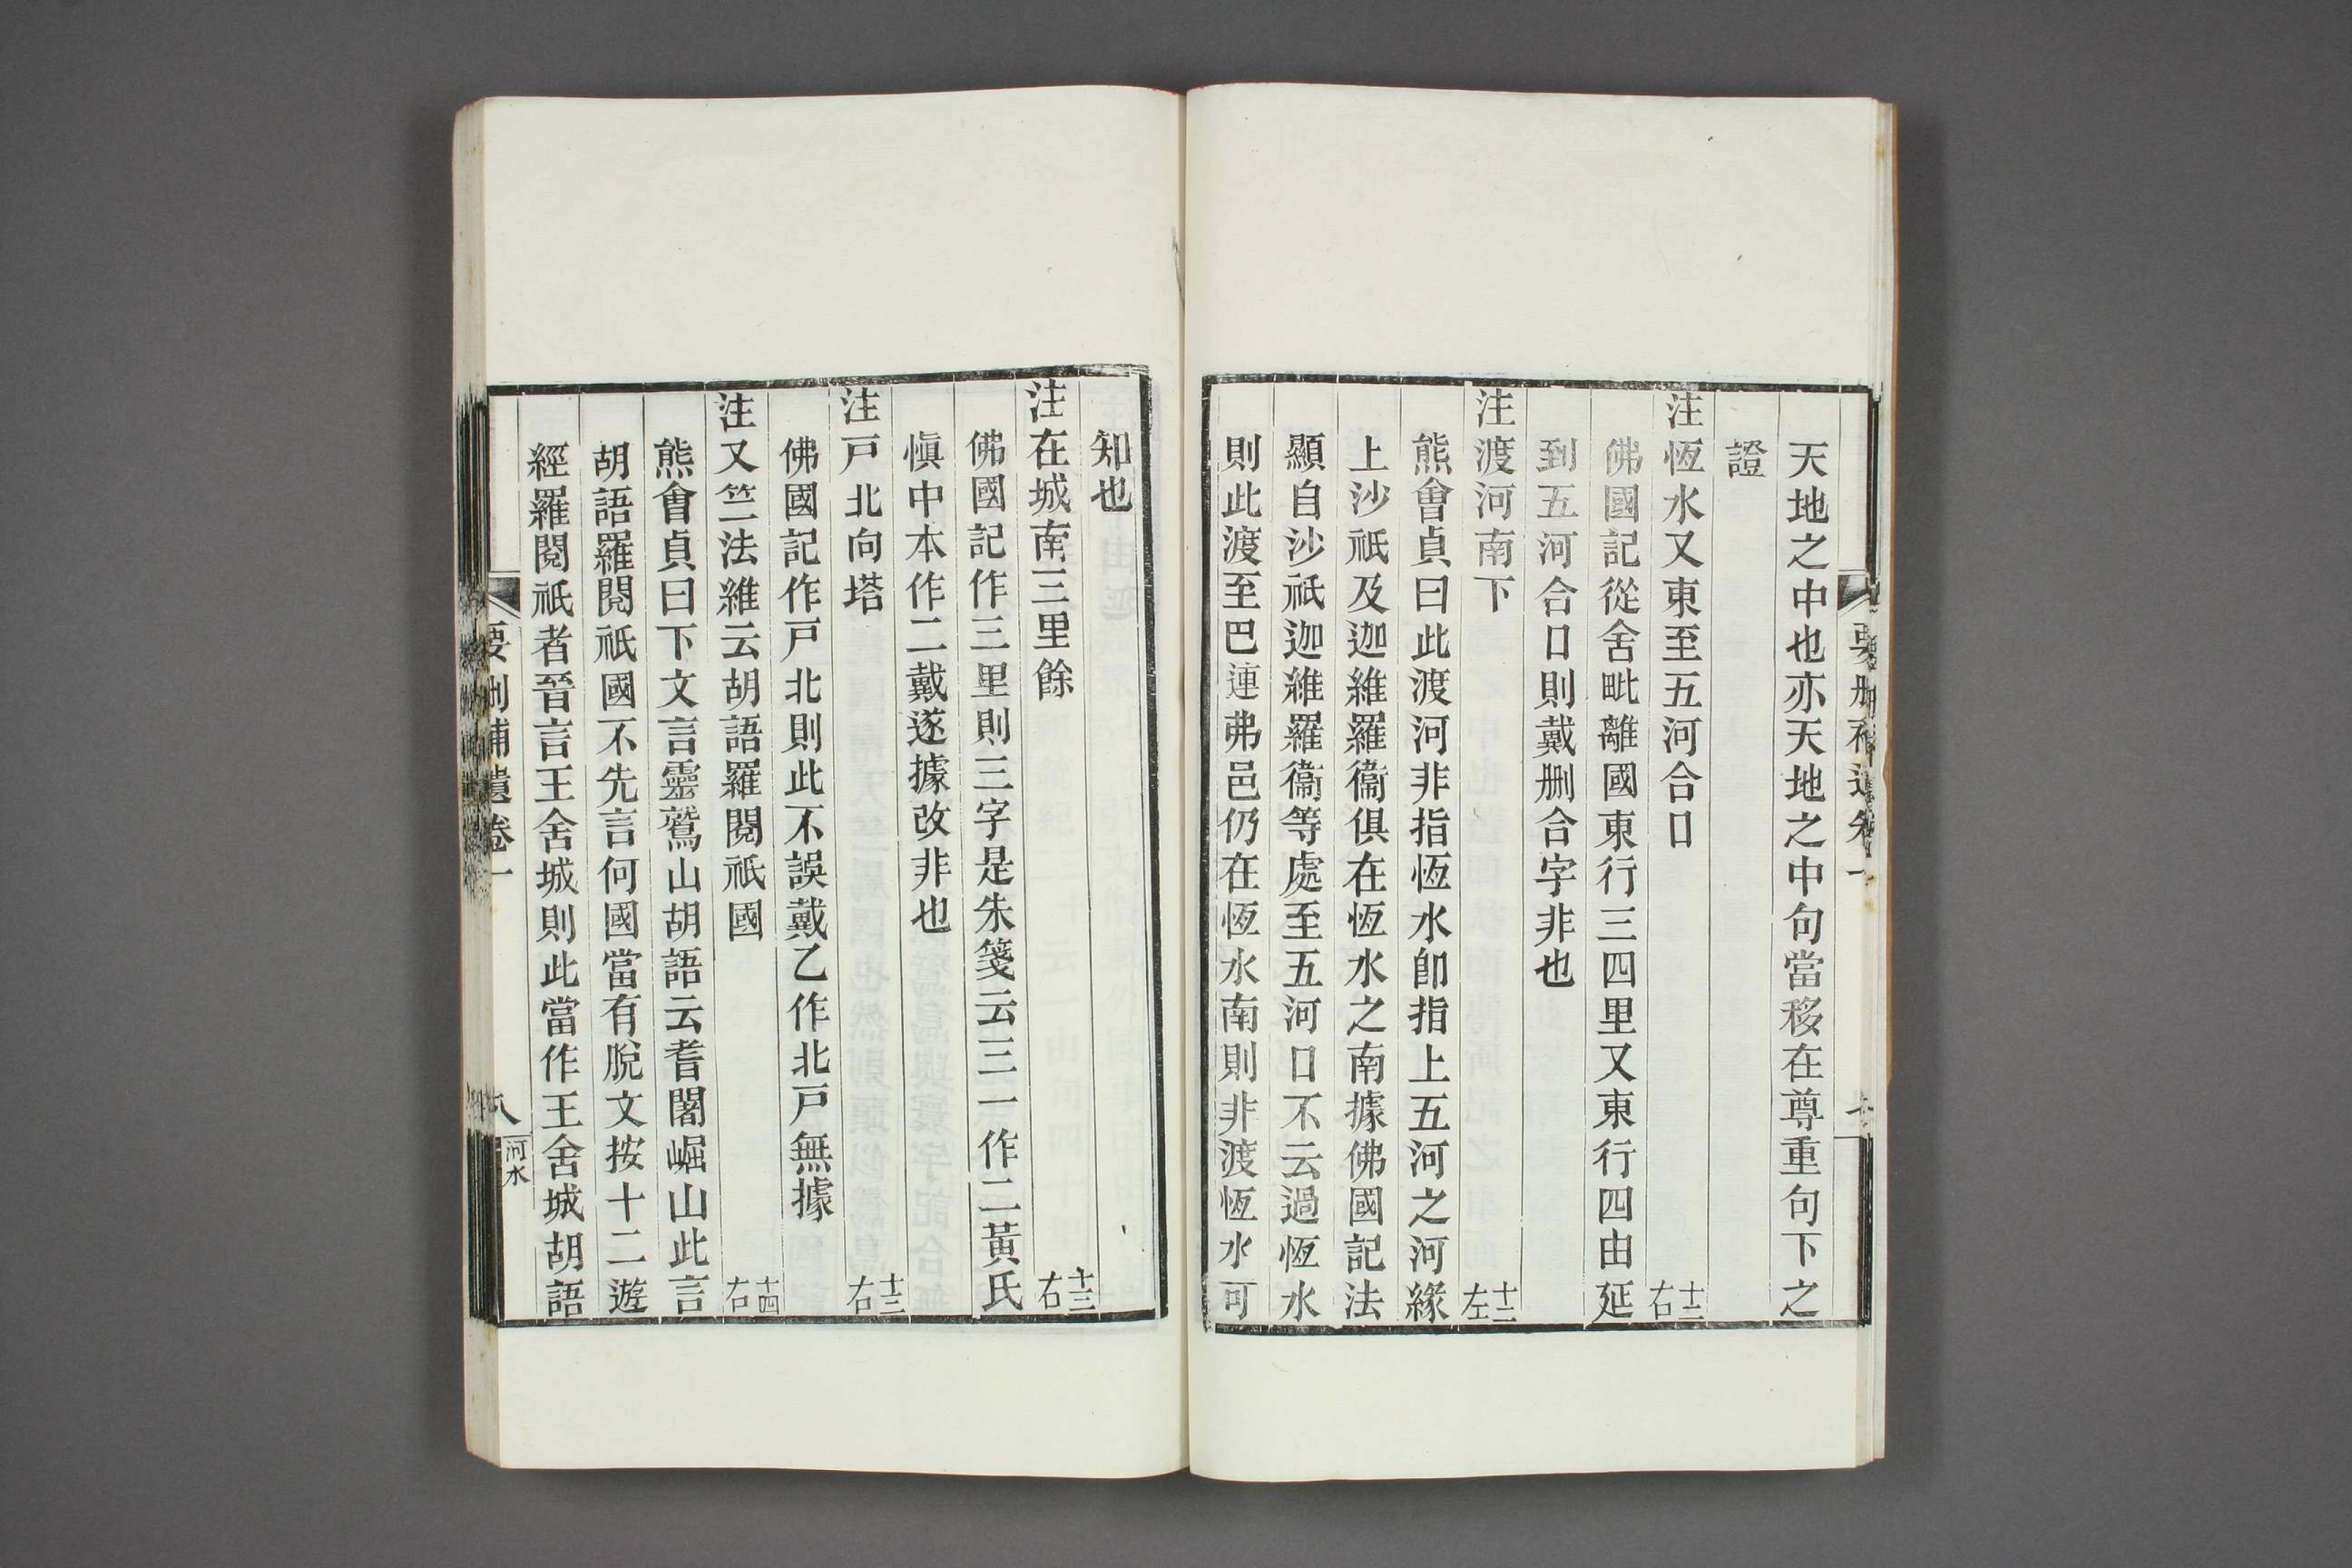 天地之中也亦天地之中句當移在尊重句下之
證
注恆水又東至五河合口 十二右
佛國記從舍毗離國東行三四里又東行四由延
到五河合口則戴刪合字非也
注渡河南下 十二左
熊會貞曰此渡河非指恆水卽指上五河之河緣
上沙祇及迦維羅衞俱在恆水之南據佛國記法
顯自沙祇迦維羅衞等處至五河口不云過恆水
則此渡至巴連弗邑仍在恆水南則非渡恆水可
知也
注在城南三里餘 十三右
佛國記作三里則三字是朱箋云三一作二黃氏
愼中本作二戴遂據改非也
注戸北向塔 十三右
佛國記作戸北則此不誤戴乙作北戸無據
注又竺法維云胡語羅閱祇國 十四右
熊會貞曰下文言靈鷲山胡語云耆闍崛山此言
胡語羅閱祇國不先言何國當有脫文按十二遊
經羅閱祇者晉言王舍城則此當作王舍城胡語
要刪補遺卷一
八
河水